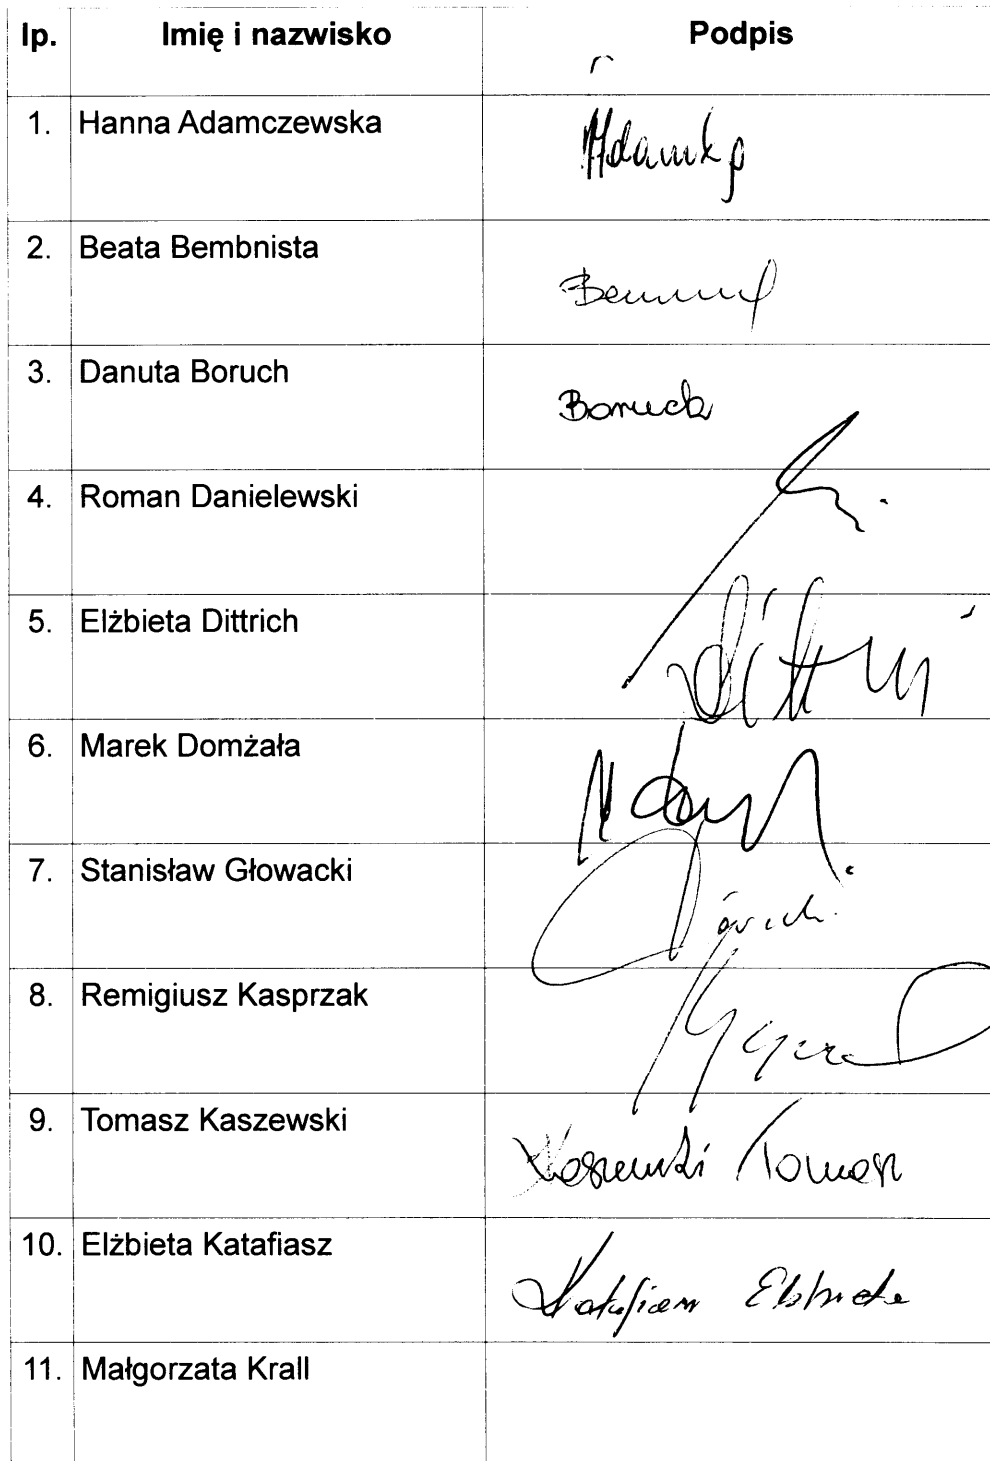 lp. Imię i nazwisko Podpis
1. Hanna Adamczewska
2. Beata Bembnista
3. Danuta Boruch Boruch
4. Roman Danielewski
5. Elżbieta Dittrich
6. Marek Domżała
7. Stanisław Głowacki
8. Remigiusz Kasprzak
9. Tomasz Kaszewski Kaszewski Tomasz
10. Elżbieta Katafiasz Katafiasz Elżbieta
11. Małgorzata Krall